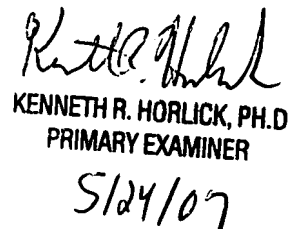 Kenneth R. Horlick
KENNETH R. HORLICK, PH.D
PRIMARY EXAMINER
5/24/07